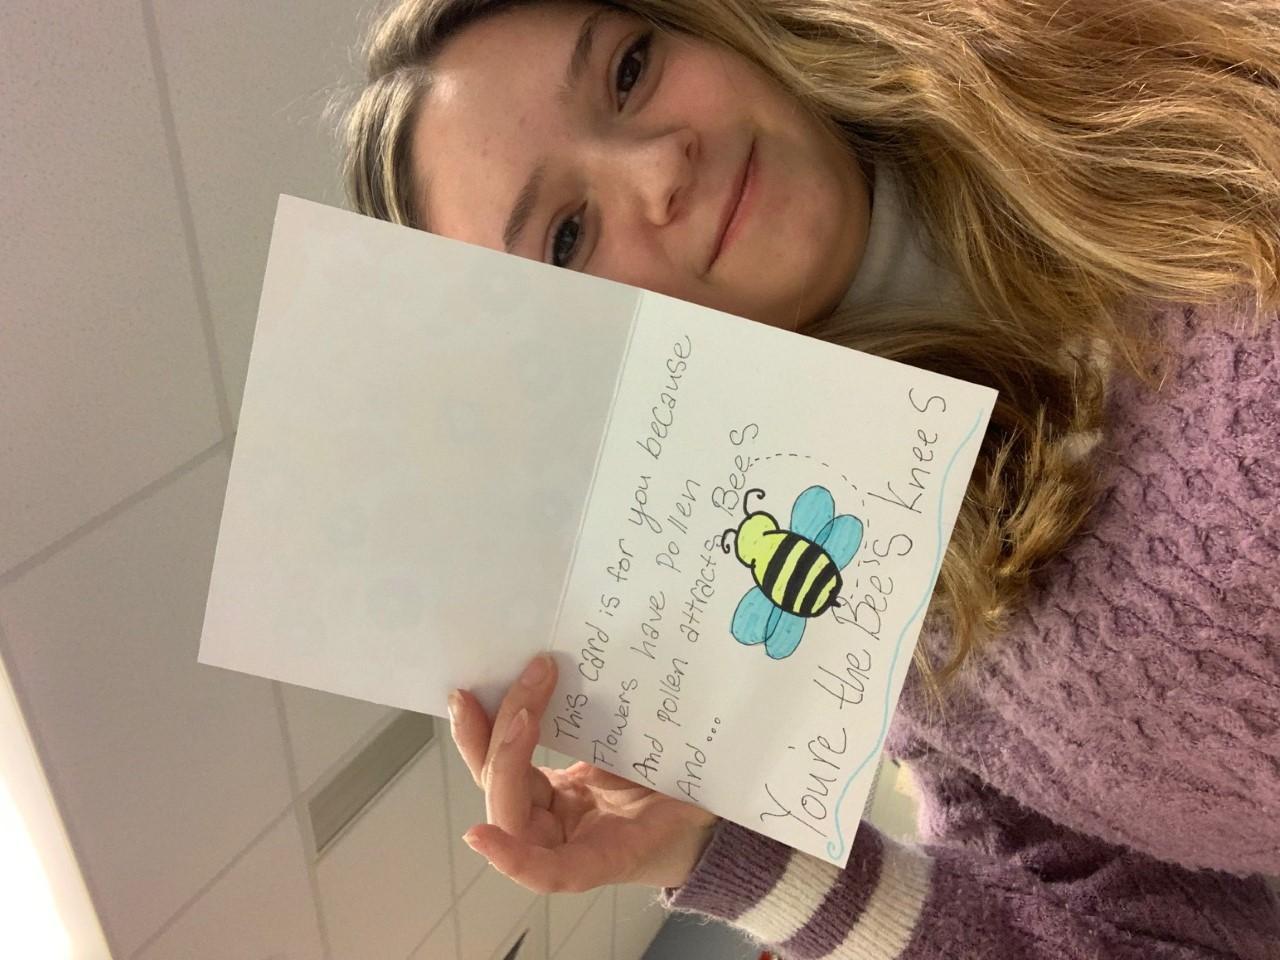 This card is for you because
Flowers have pollen
And pollen attracts Bees
And...
You're the Bee's knees